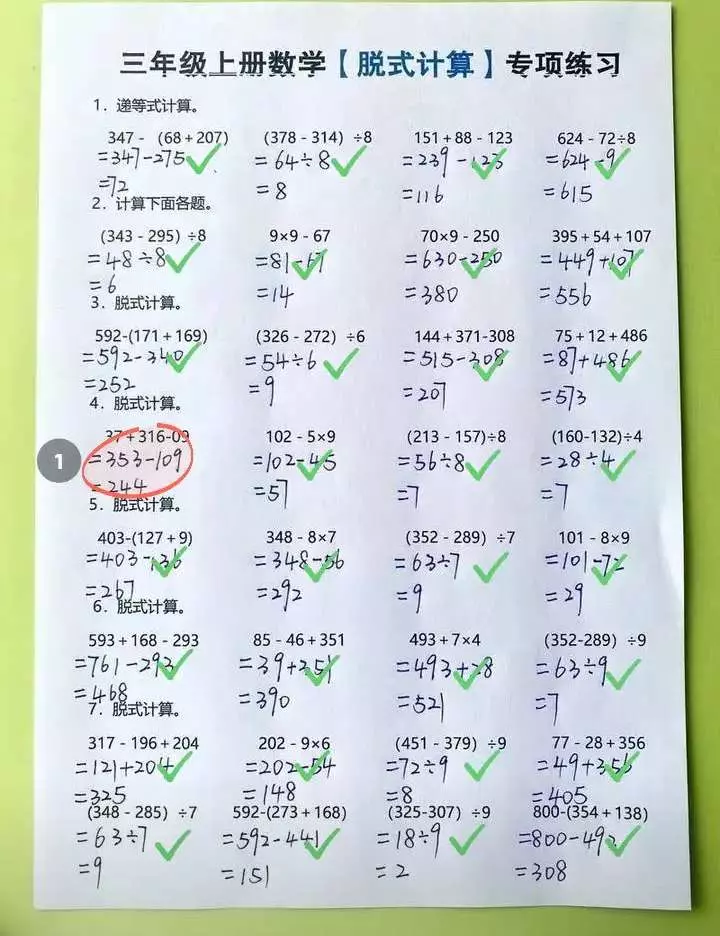 三年级上册数学【脱式计算】专项练习
1. 递等式计算。
347 - (68 + 207) (378 - 314) ÷8 151 + 88 - 123 624 - 72÷8
=347-275 =64÷8 =239-123 =624-9
=72 =8 =116 =615
2. 计算下面各题。
(343 - 295) ÷8 9×9 - 67 70×9 - 250 395 + 54 + 107
=48÷8 =81-67 =630-250 =449+107
=6 =14 =380 =556
3. 脱式计算。
592-(171 + 169) (326 - 272) ÷6 144 + 371-308 75 + 12 + 486
=592-340 =54÷6 =515-308 =87+486
=252 =9 =207 =573
4. 脱式计算。
37 + 316-09 102 - 5×9 (213 - 157)÷8 (160-132)÷4
1
=353-109 =102-45 =56÷8 =28÷4
=244 =57 =7 =7
5. 脱式计算。
403-(127 + 9) 348 - 8×7 (352 - 289) ÷7 101 - 8×9
=403-136 =348-56 =63÷7 =101-72
=267 =292 =9 =29
6. 脱式计算。
593 + 168 - 293 85 - 46 + 351 493 + 7×4 (352-289) ÷9
=761-293 =39+351 =493+28 =63÷9
=468 =390 =521 =7
7. 脱式计算。
317 - 196 + 204 202 - 9×6 (451 - 379) ÷9 77 - 28 + 356
=121+204 =202-54 =72÷9 =49+356
=325 =148 =8 =405
(348 - 285) ÷7 592-(273 + 168) (325-307) ÷9 800-(354 + 138)
=63÷7 =592-441 =18÷9 =800-492
=9 =151 =2 =308